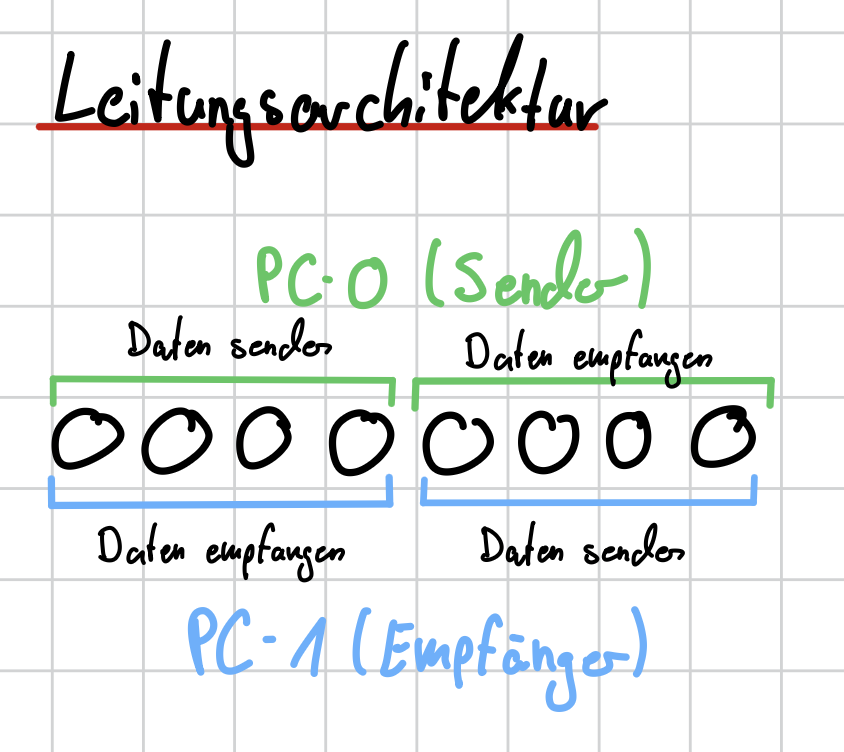 Leitungsarchitektur
PC-0 (Sender)
Daten sender Daten empfangen
Daten empfangen Daten sender
PC-1 (Empfänger)